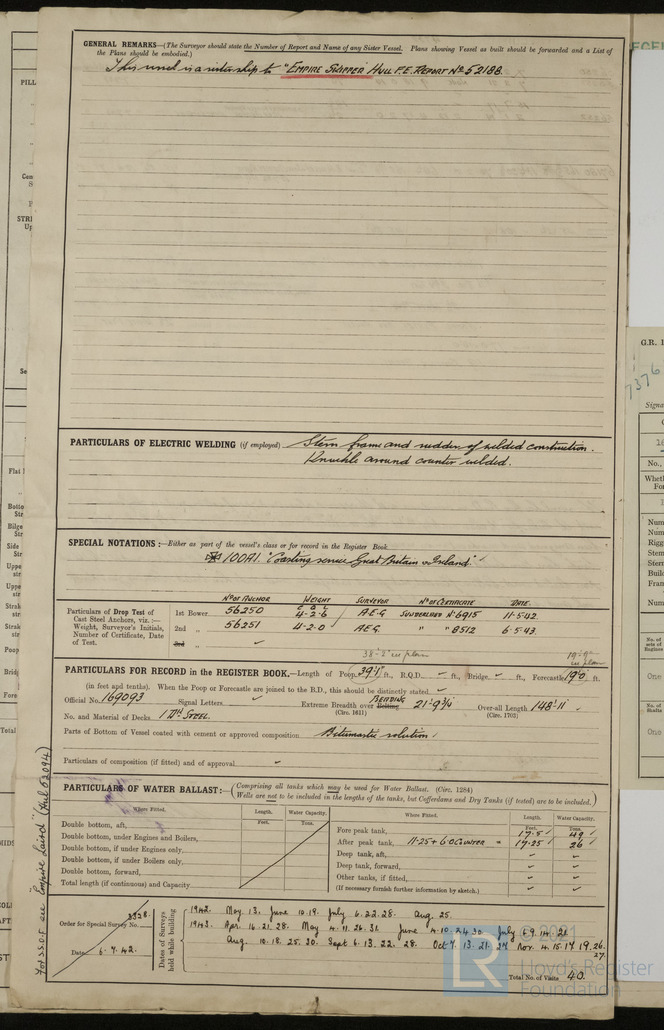 GENERAL REMARKS—(The Surveyor should state the Number of Report and Name of any Sister Vessel. Plans showing Vessel as built should be forwarded and a List of
the Plans should be embodied.)
This vessel is a sistership to "EMPIRE SKIPPER" HULL F.E. REPORT No. 52188.
PARTICULARS OF ELECTRIC WELDING (if employed) Stern frame and rudder of welded construction.
Knuckle around counter welded.
SPECIAL NOTATIONS:—Either as part of the vessel's class or for record in the Register Book
100A1. "Coasting service Great Britain & Ireland"
No. OF ANCHOR WEIGHT SURVEYOR No. OF CERTIFICATE DATE.
Particulars of Drop Test of
Cast Steel Anchors, viz.:—
Weight, Surveyor's Initials,
Number of Certificate, Date
of Test.
1st Bower 56250 4-2-6 A.E.G. SUNDERLAND No. 6915 11-5-42
2nd " 56251 4-2-0 A.E.G. " " 8512 6-5-43
3rd "
38'-2" as plan
19'-9" as plan
PARTICULARS FOR RECORD in the REGISTER BOOK.—Length of Poop 39'1" ft., R.Q.D. ft., Bridge ft., Forecastle 19'0 ft.
(in feet and tenths). When the Poop or Forecastle are joined to the B.D., this should be distinctly stated
Official No. 169093 Signal Letters Extreme Breadth over Belting BEADING 21'-9¾" Over-all Length 148'-11"
(Circ. 1611) (Circ. 1703)
No. and Material of Decks 1 DK STEEL.
Parts of Bottom of Vessel coated with cement or approved composition Bitumastic solution.
Particulars of composition (if fitted) and of approval
PARTICULARS OF WATER BALLAST:— (Comprising all tanks which may be used for Water Ballast. (Circ. 1284)
Wells are not to be included in the lengths of the tanks, but Cofferdams and Dry Tanks (if tested) are to be included.)
Where Fitted. Length. Water Capacity.
Feet. Tons.
Double bottom, aft,
Double bottom, under Engines and Boilers,
Double bottom, if under Engines only,
Double bottom, if under Boilers only,
Double bottom, forward,
Total length (if continuous) and Capacity
Where Fitted. Length. Water Capacity.
Feet. Tons.
Fore peak tank, 17.5 49
After peak tank, 11.25 + 6.0 COUNTER = 17.25 26
Deep tank, aft,
Deep tank, forward,
Other tanks, if fitted,
(If necessary furnish further information by sketch.)
For S.S.O.F. see "Empire Laird" (Hul 52094)
Order for Special Survey No. 3328.
Date 6.7.42.
Dates of Surveys
held while building
1942. May. 13. June 10.19. July 6.22.28. Aug. 25.
1943. Apr. 16.21.28. May 4.11.26.31 June 4.10.24.30 July 6.9.14.21
Aug. 10.18.25.30. Sept 6.13.22.28. Oct 7.13.21.27 Nov. 4.15.17.19.26.
27.
Total No. of Visits 40.
© 2021
LR
Lloyd's Register
Foundation